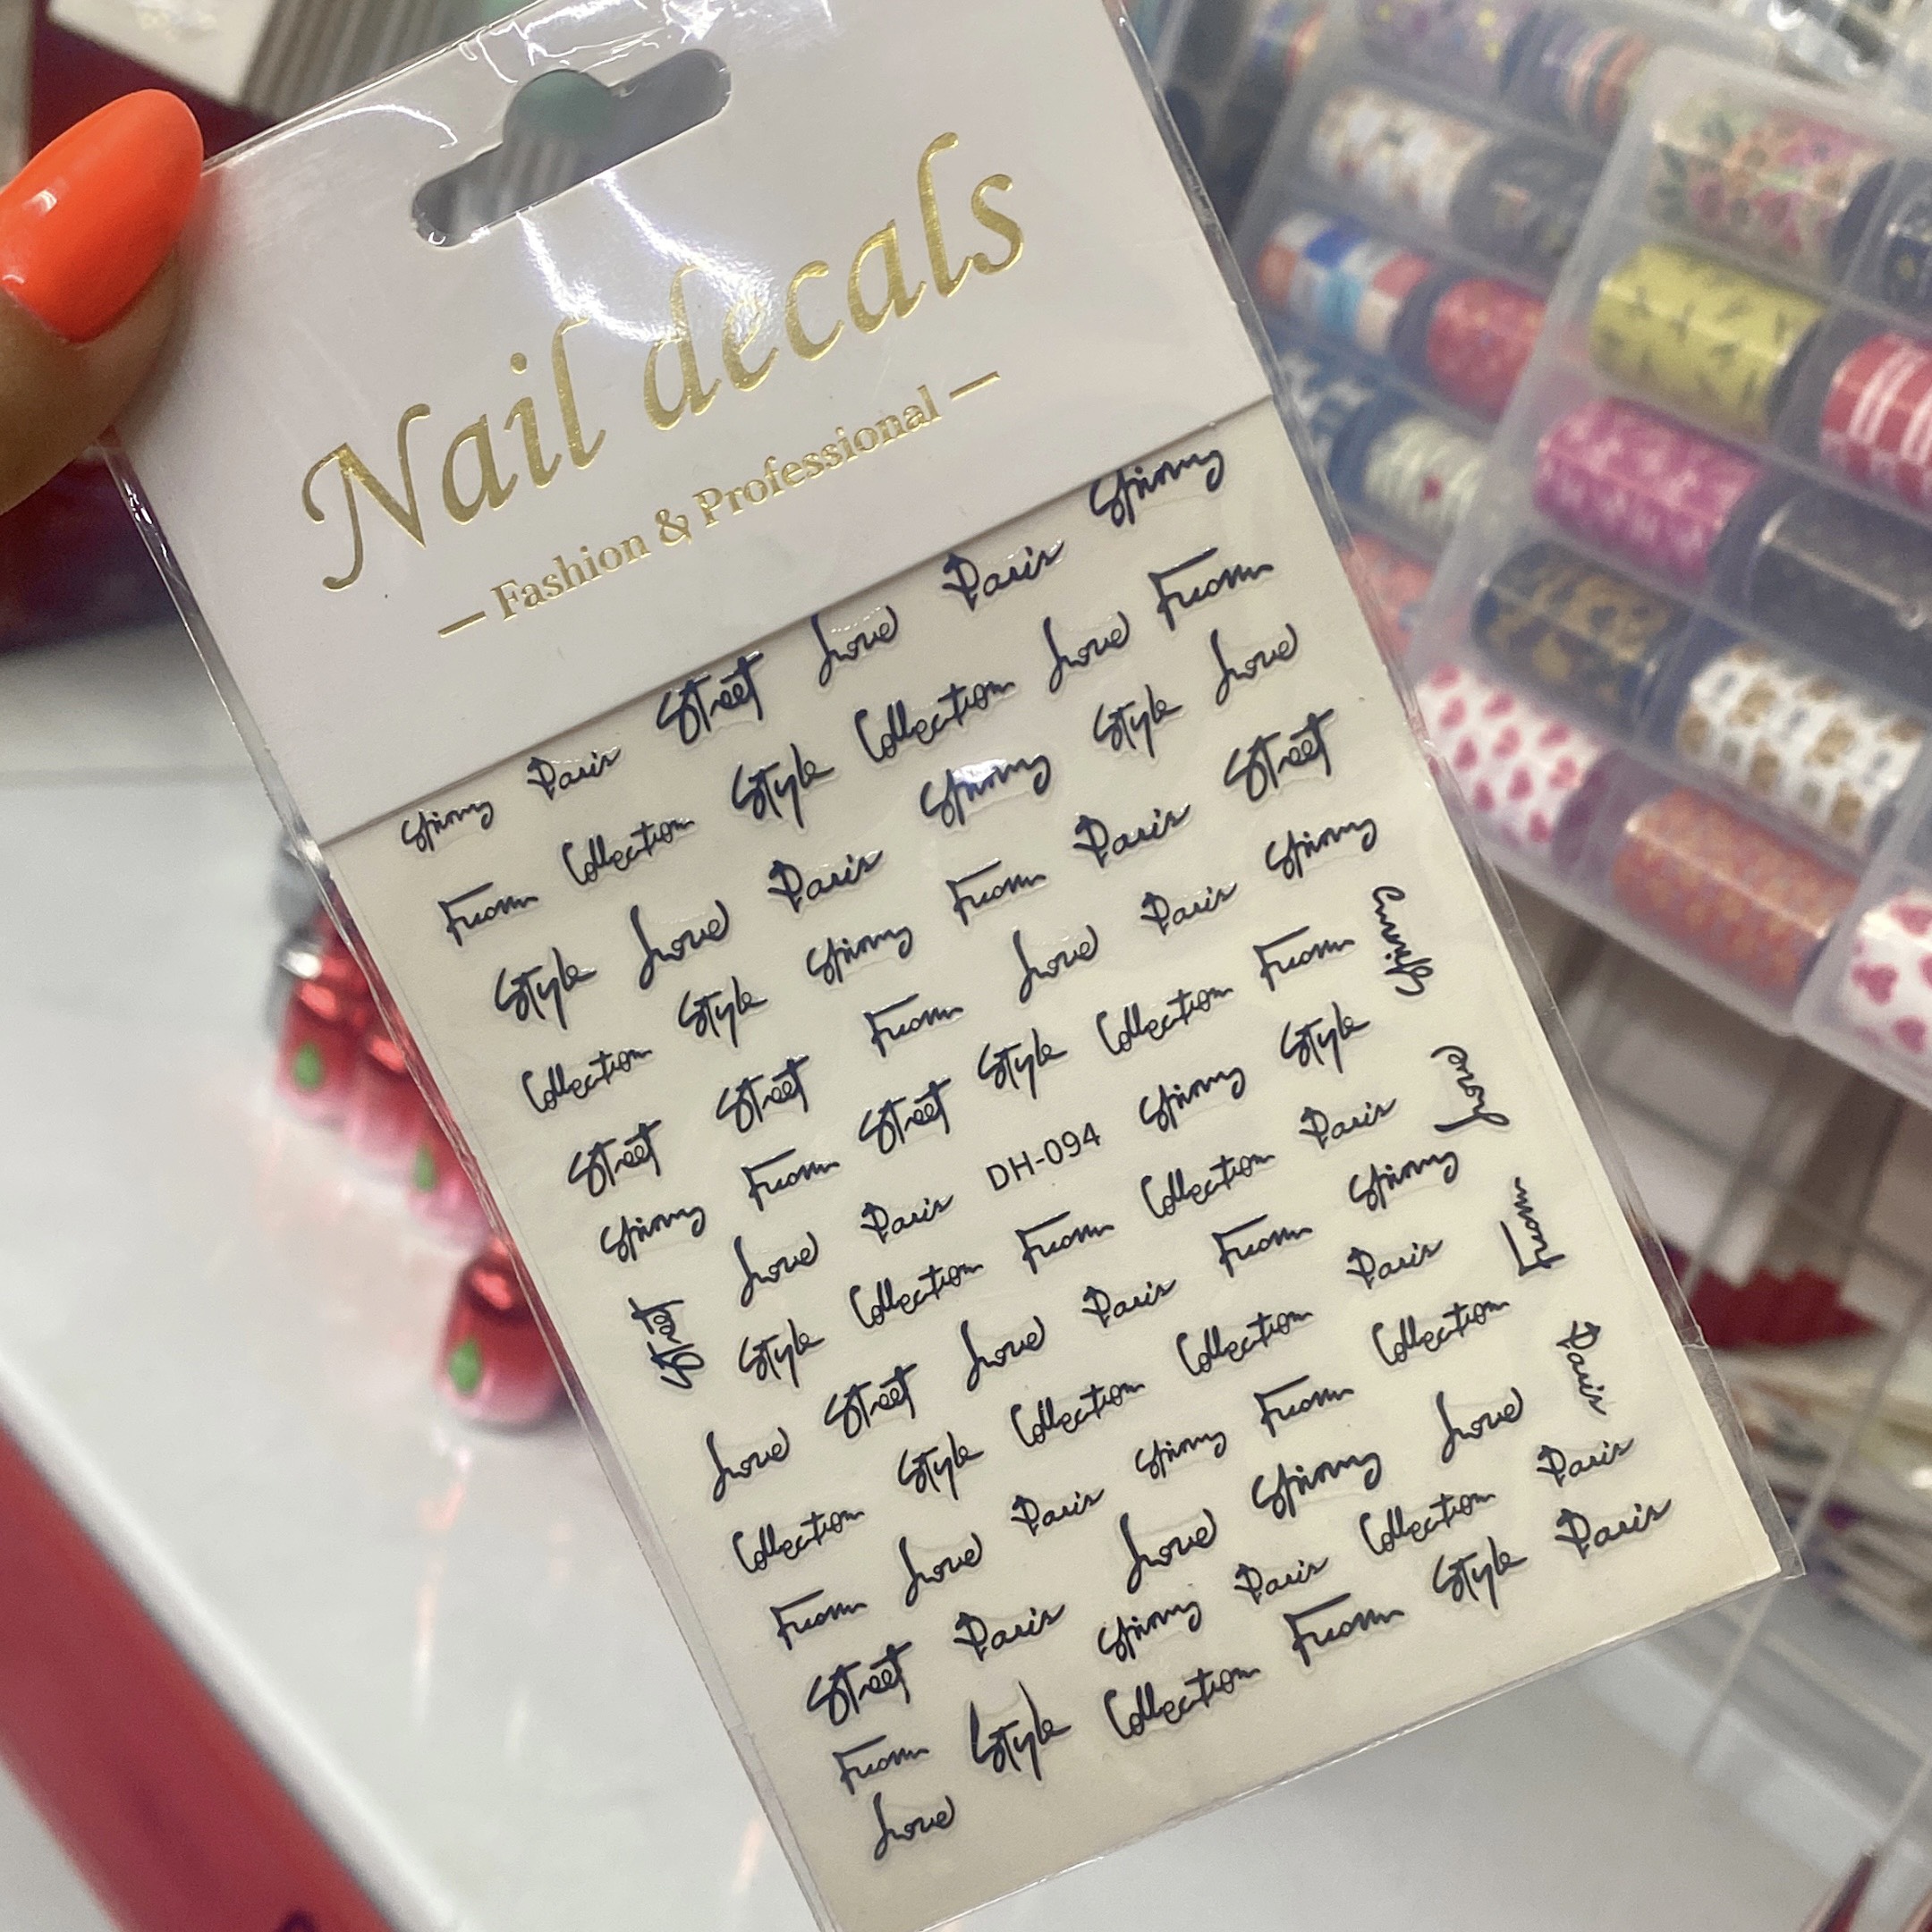 Nail decals
— Fashion & Professional —
Paris Street Love Paris
From Collection Style Collection Love From
Style Love Paris Style Love
Collection Style From Paris Street
Street Street From Love Paris
From Street Style Collection From
Street Love Paris DH-094 Style
Style Collection From Collection Paris Love
Love Street Love Paris From From
Collection Style Collection Collection Paris
From Love Paris From Collection Paris
Street Paris Love Love
From Paris Collection Paris
Love Style Collection From Style Paris